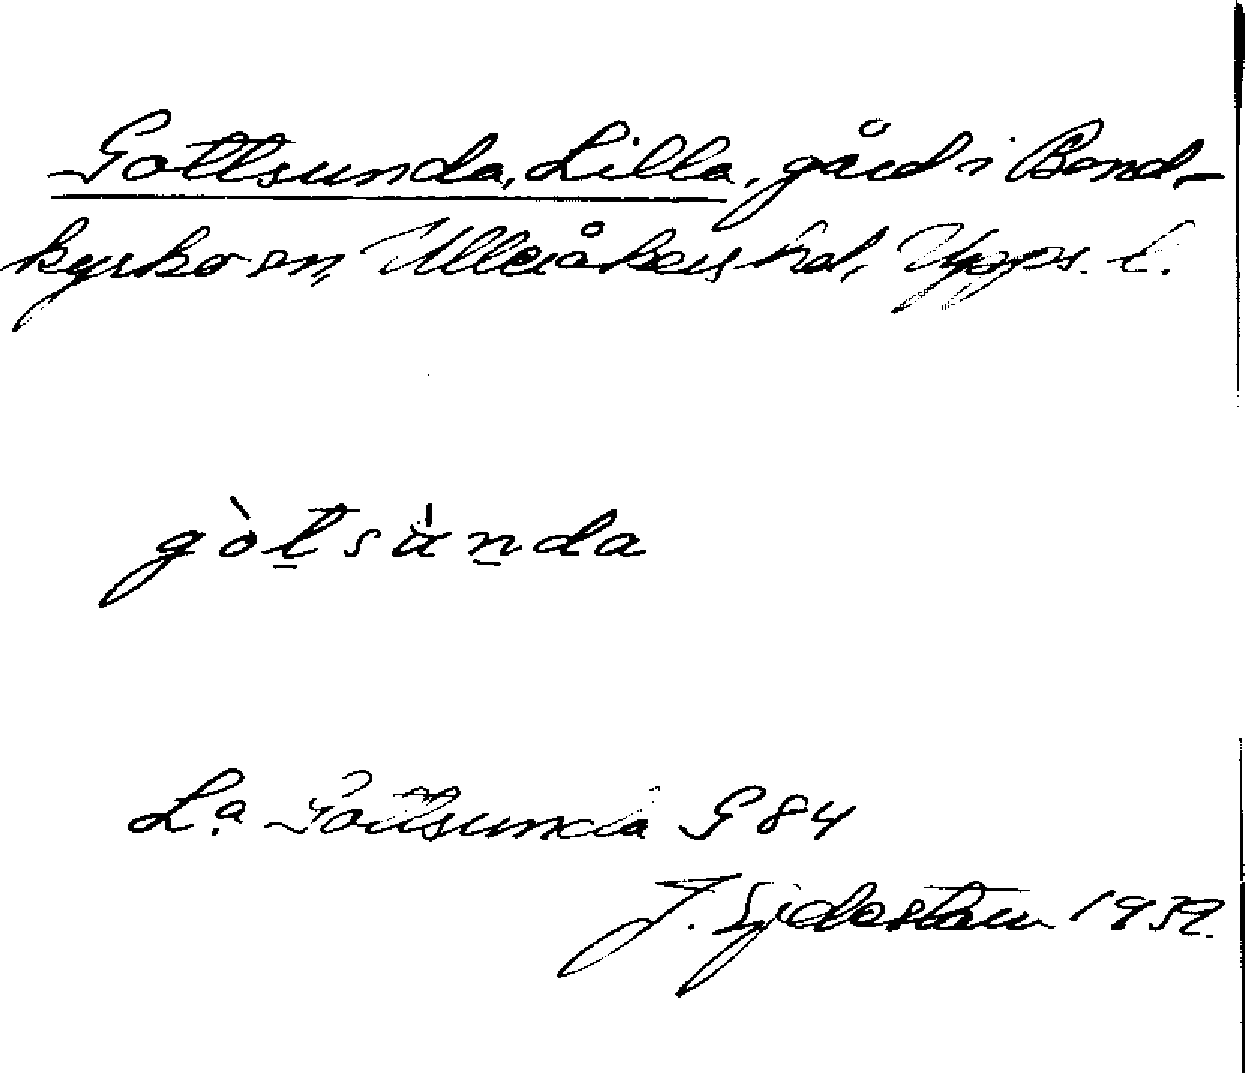 Gottsunda, Lilla, gård i Bond-
kyrko sn, Ulleråkers hd, Upps. l.
gòt̠sὰn̠da
L.a Gottsunda G 84
J. 1939.